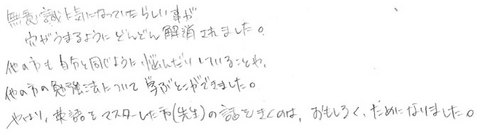 無意識に気になっていたらしい事が
穴がうまるようにどんどん解消されました。
他の方も自分と同じように悩んだりしていることや、
他の方の勉強法について学ぶことができました。
やはり、英語をマスターした方(先生)の話をきくのは、おもしろく、ためになりました。